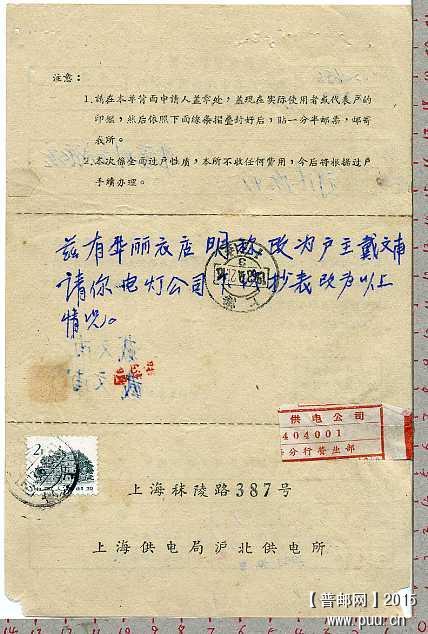 注意：
1.請在本单背面申請人蓋章处，蓋現在实际使用者或代表户的
印鑑，然后依照下面線条摺叠封好后，貼一分半邮票，邮寄
我所。
2.本次係全面过户性质，本所不收任何費用，今后将根据过户
手續办理。
兹有华丽衣店 改为户主戴文甫
請你电灯公司 抄表改为以上
情况。
戴文甫
供电公司
404001
分行营业部
上海秣陵路387号
上海供电局沪北供电所
【普邮网】2015
www.puu.cn